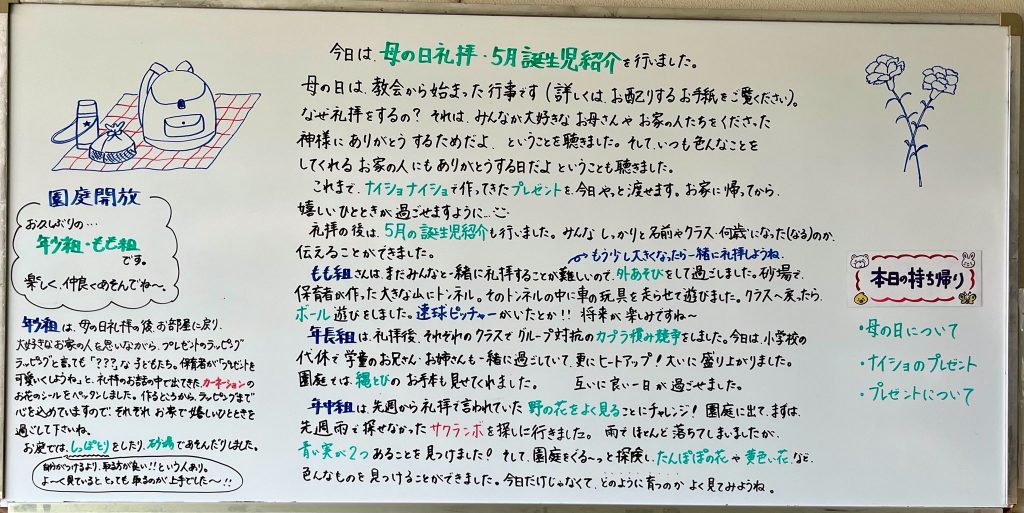 今日は、母の日礼拝・5月誕生児紹介を行いました。
母の日は、教会から始まった行事です(詳しくは、お配りするお手紙をご覧ください)。
なぜ礼拝をするの？それは、みんなが大好きなお母さんやお家の人たちをくださった
神様にありがとうするためだよ、ということを聴きました。そして、いつも色んなことを
してくれるお家の人にもありがとうする日だよということも聴きました。
これまで、ナイショナイショで作ってきたプレゼントを、今日やっと渡せます。お家に帰ってから、
嬉しいひとときが過ごせますように…
礼拝の後は、5月の誕生児紹介も行いました。みんなしっかりと名前やクラス・何歳になった(なる)のか、
伝えることができました。
もう少し大きくなったら一緒に礼拝しようね。
もも組さんは、まだみんなと一緒に礼拝することが難しいので、外あそびをして過ごしました。砂場で、
保育者が作った大きな山にトンネル。そのトンネルの中に車の玩具を走らせて遊びました。クラスへ戻ったら、
ボール遊びをしました。速球ピッチャーがいたとか!!将来が楽しみですね〜
年長組は、礼拝後、それぞれのクラスでグループ対抗のカプラ積み競争をしました。今日は、小学校の
代休で学童のお兄さん・お姉さんも一緒に過ごしていて、更にヒートアップ！大いに盛り上がりました。
園庭では、縄とびのお手本も見せてくれました。 互いに良い一日が過ごせました。
年中組は、先週から礼拝で言われていた野の花をよく見ることにチャレンジ！園庭に出て、まずは、
先週雨で探せなかったサクランボを探しに行きました。雨でほとんど落ちてしまいましたが、
青い実が2つあることを見つけました！そして、園庭をぐる〜っと探険し、たんぽぽの花や黄色い花など、
色んなものを見つけることができました。今日だけじゃなくて、どのように育つのかよく見てみようね。
園庭開放
お久しぶりの…
年少組・もも組
です。
楽しく、仲良くあそんでね〜。
年少組は、母の日礼拝の後、お部屋に戻り、
大好きなお家の人を思いながら、プレゼントのラッピング
ラッピングと言っても「???」な子どもたち。保育者が「プレゼントを
可愛くしようね」と、礼拝のお話の中で出てきたカーネーションの
お花のシールをペッタンしました。作るところから、ラッピングまで
心を込めていますので、それぞれお家で嬉しいひとときを
過ごして下さいね。
お庭では、しっぽとりをしたり、砂場であそんだりしました。
自分がつけるより、取る方が良い!!という人あり。
よ〜く見ているととっても取るのが上手でした〜!!
本日の持ち帰り
・母の日について
・ナイショのプレゼント
・プレゼントについて